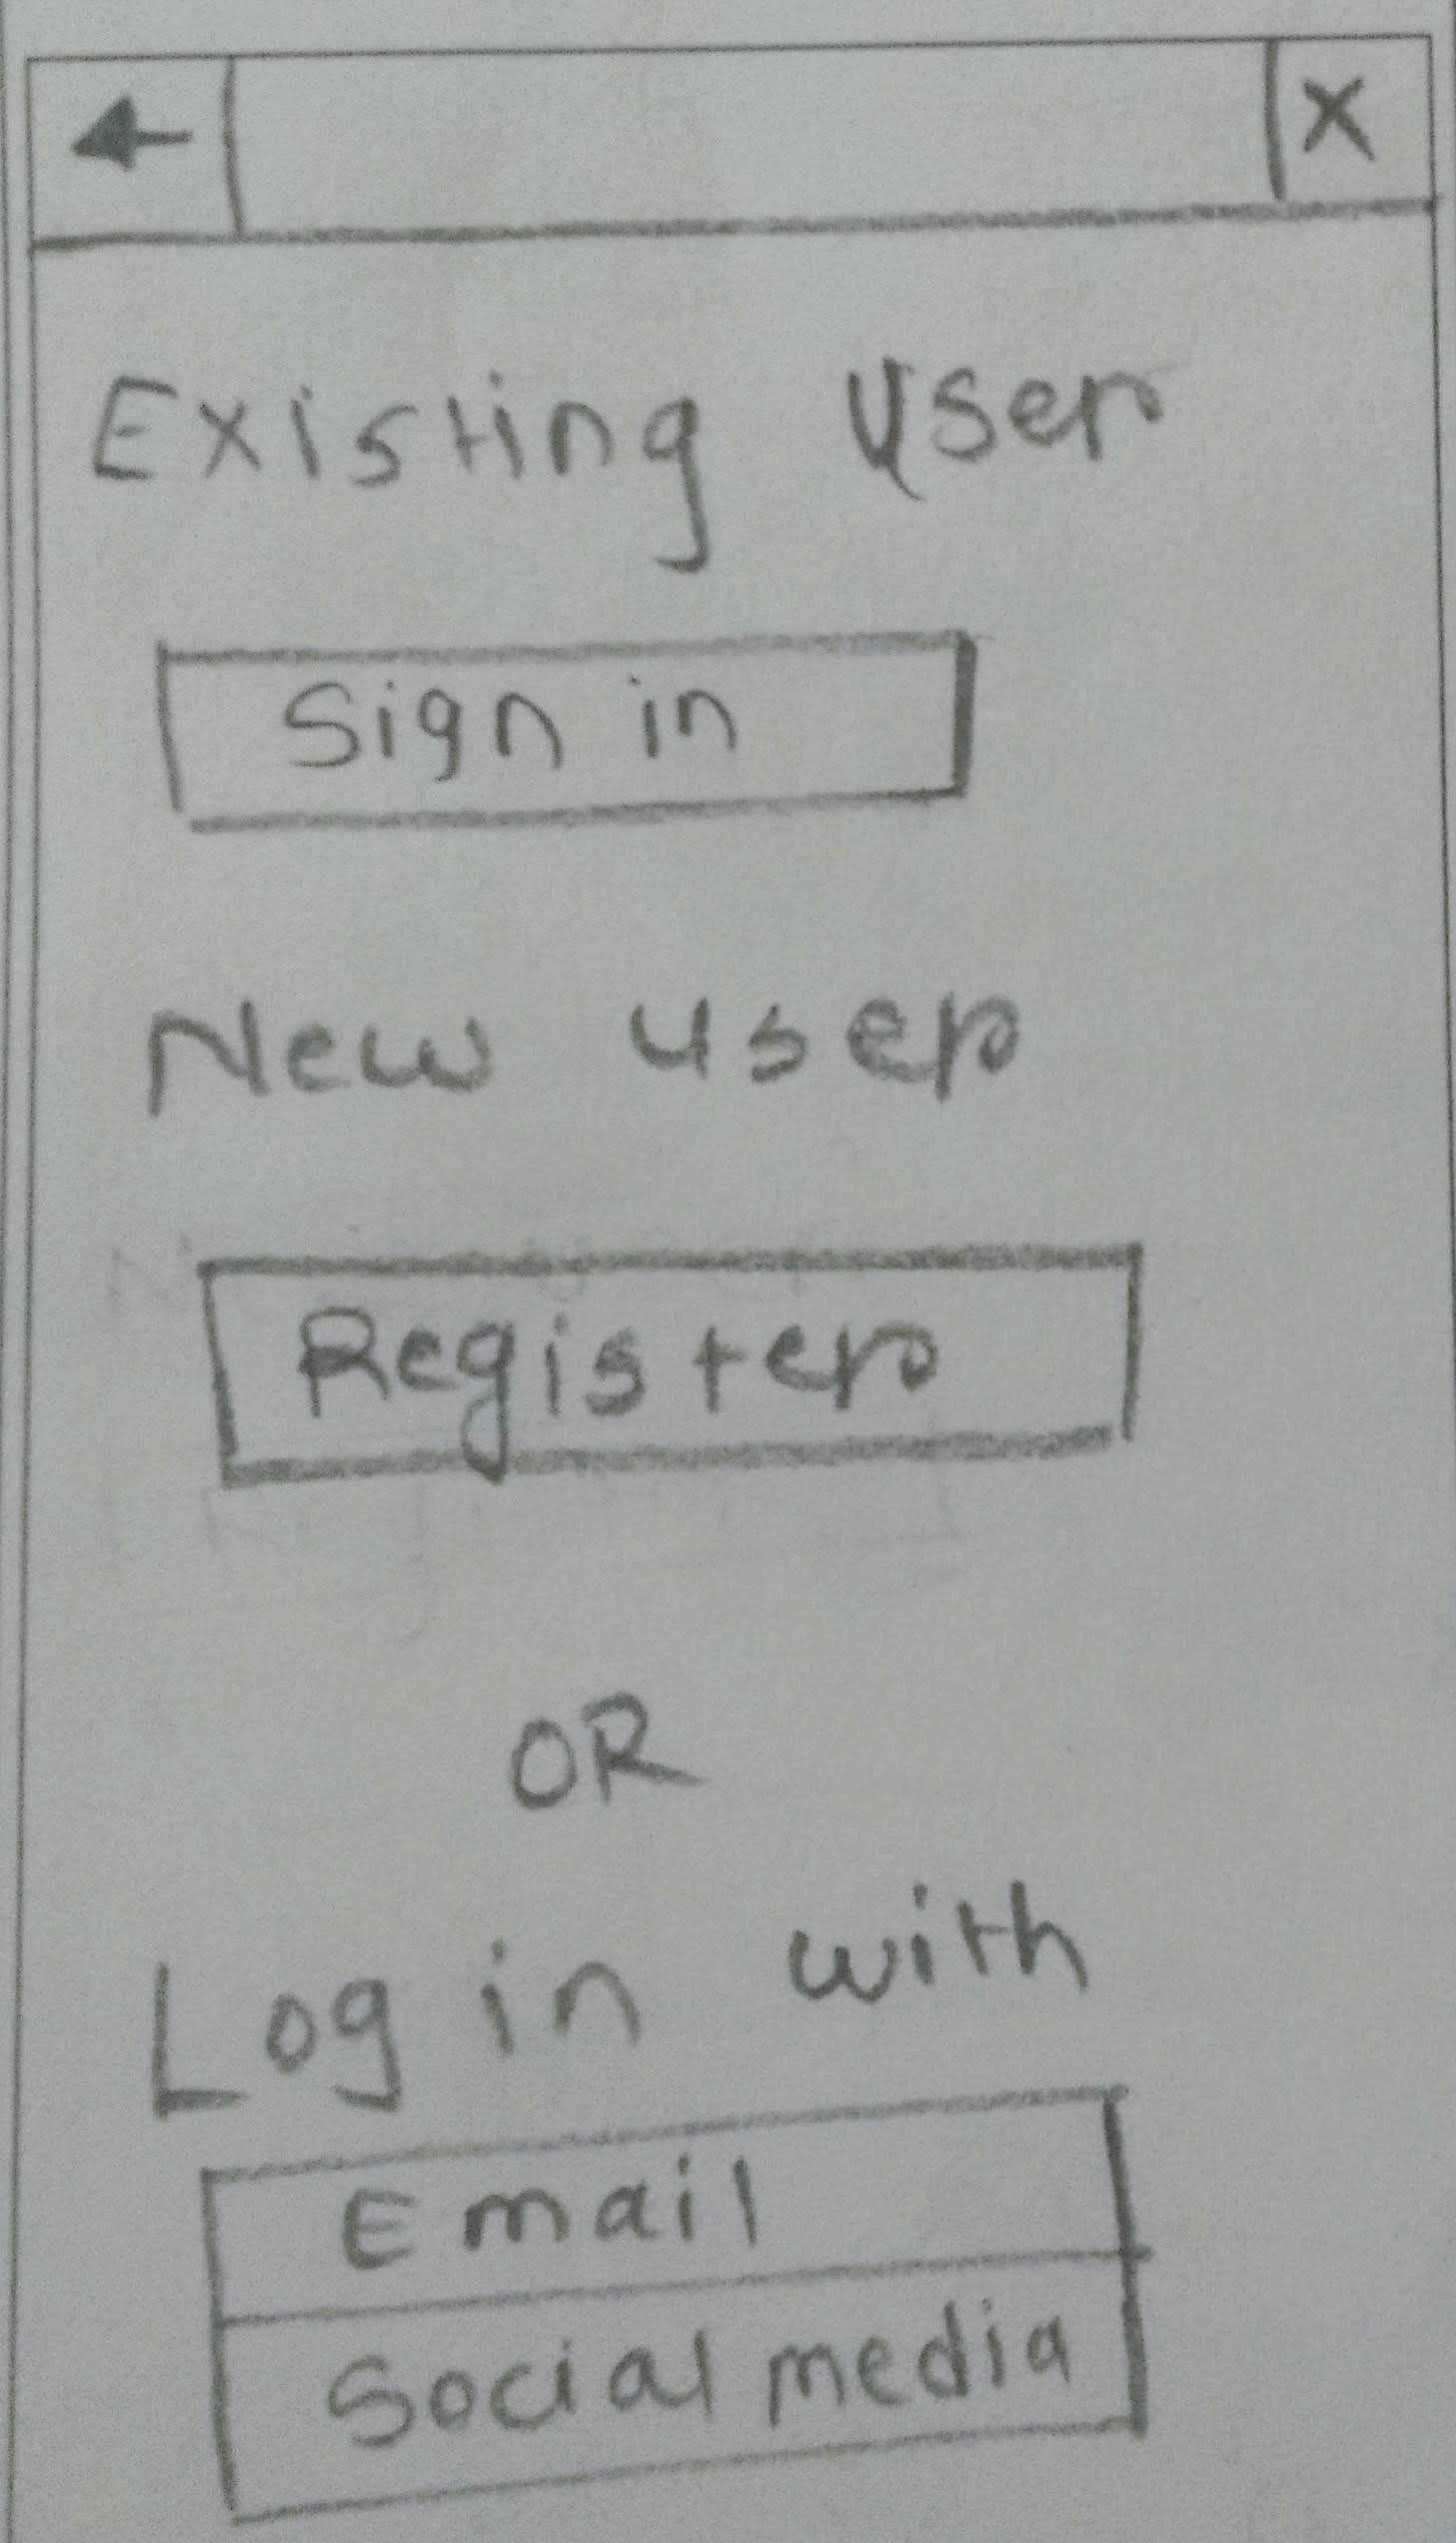 X
Existing User
Sign in
New user
Register
OR
Log in with
Email
Social media